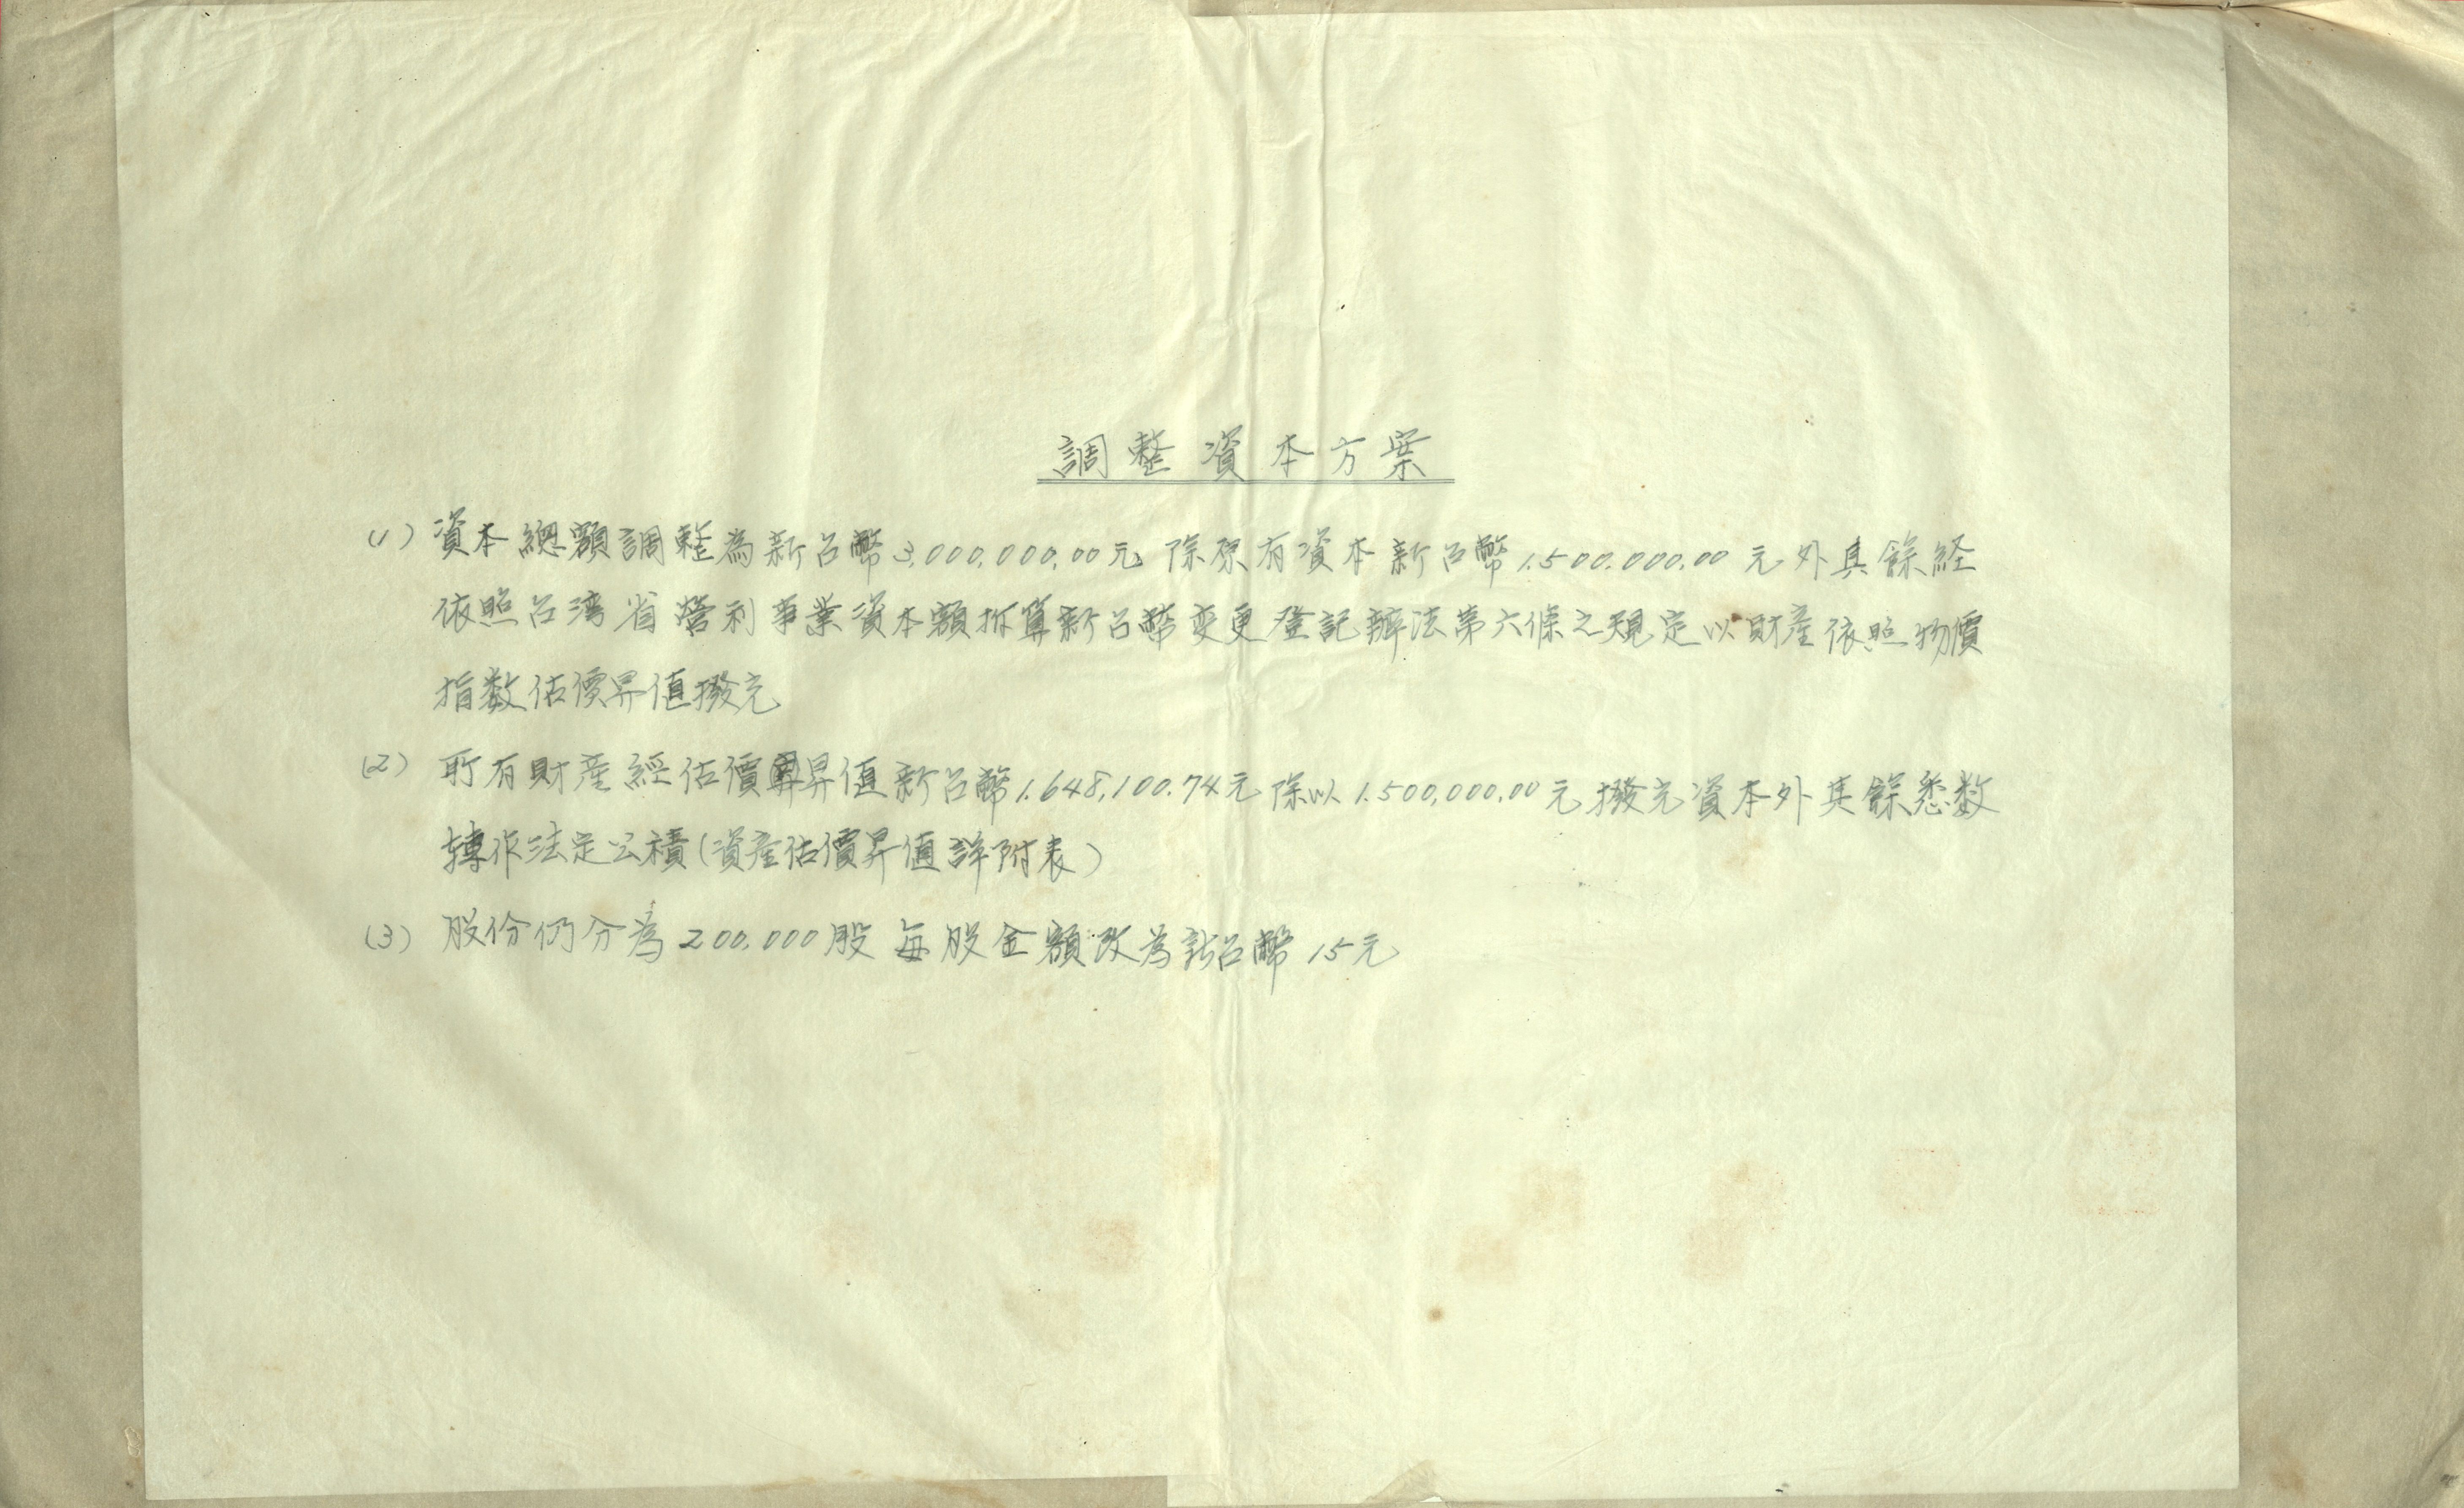 調整資本方案
(1) 資本總額調整為新台幣3,000,000.00元 除原有資本新台幣1.500.000.00元外其餘経
依照台湾省營利事業資本額折算新台幣変更登記辦法第六條之規定以財產依照物價
指数估價昇值撥充
(2) 所有財產經估價昇值新台幣1.648,100.74元除以1.500,000.00元撥充資本外其餘悉数
轉作法定公積(資產估價昇值詳附表)
(3) 股份仍分為200.000股每股金額改為新台幣15元